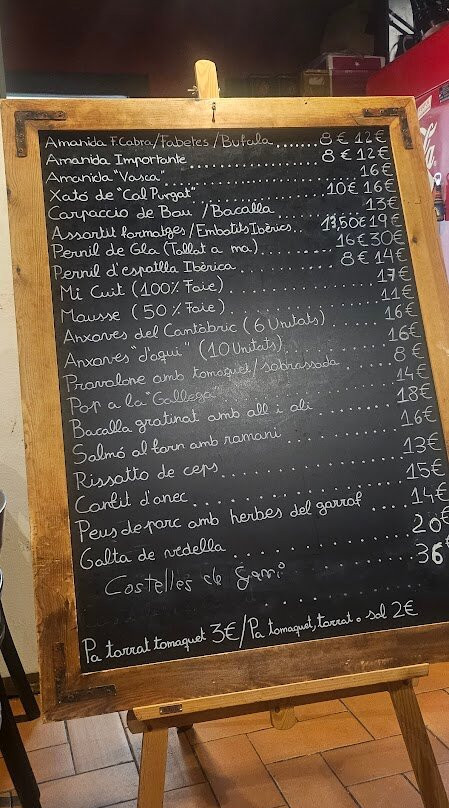 Amanida F.Cabra/Fabetes/Bufala ....... 8€ 12€
Amanida Importante ........ 8€ 12€
Amanida "Vasca" ........ 16€
Xató de "Cal Purgat" ........ 10€ 16€
Carpaccio de Bou /Bacalla ........ 13€
Assortit formatges/Embotits Ibèrics. 13,50€ 19€
Pernil de Gla (Tallat a ma) ........ 16€ 30€
Pernil d'espatlla Ibèrica ........ 8€ 14€
Mi Cuit (100% Foie) ........ 17€
Mausse (50% Foie) ........ 11€
Anxoves del Cantàbric (6 Unitats) ........ 16€
Anxoves "d'aqui" (10 Unitats) ........ 16€
Provolone amb tomaquet/sobrassada ........ 8€
Pop a la "Gallega" ........ 14€
Bacalla gratinat amb all i oli ........ 18€
Salmó al forn amb romani ........ 16€
Rissotto de ceps ........ 13€
Confit d'anec ........ 15€
Peus de porc amb herbes del garraf ........ 14€
Galta de vedella ........ 20€
Costelles de ........ 36€
Pa torrat tomaquet 3€/Pa tomaquet, torrat o sol 2€